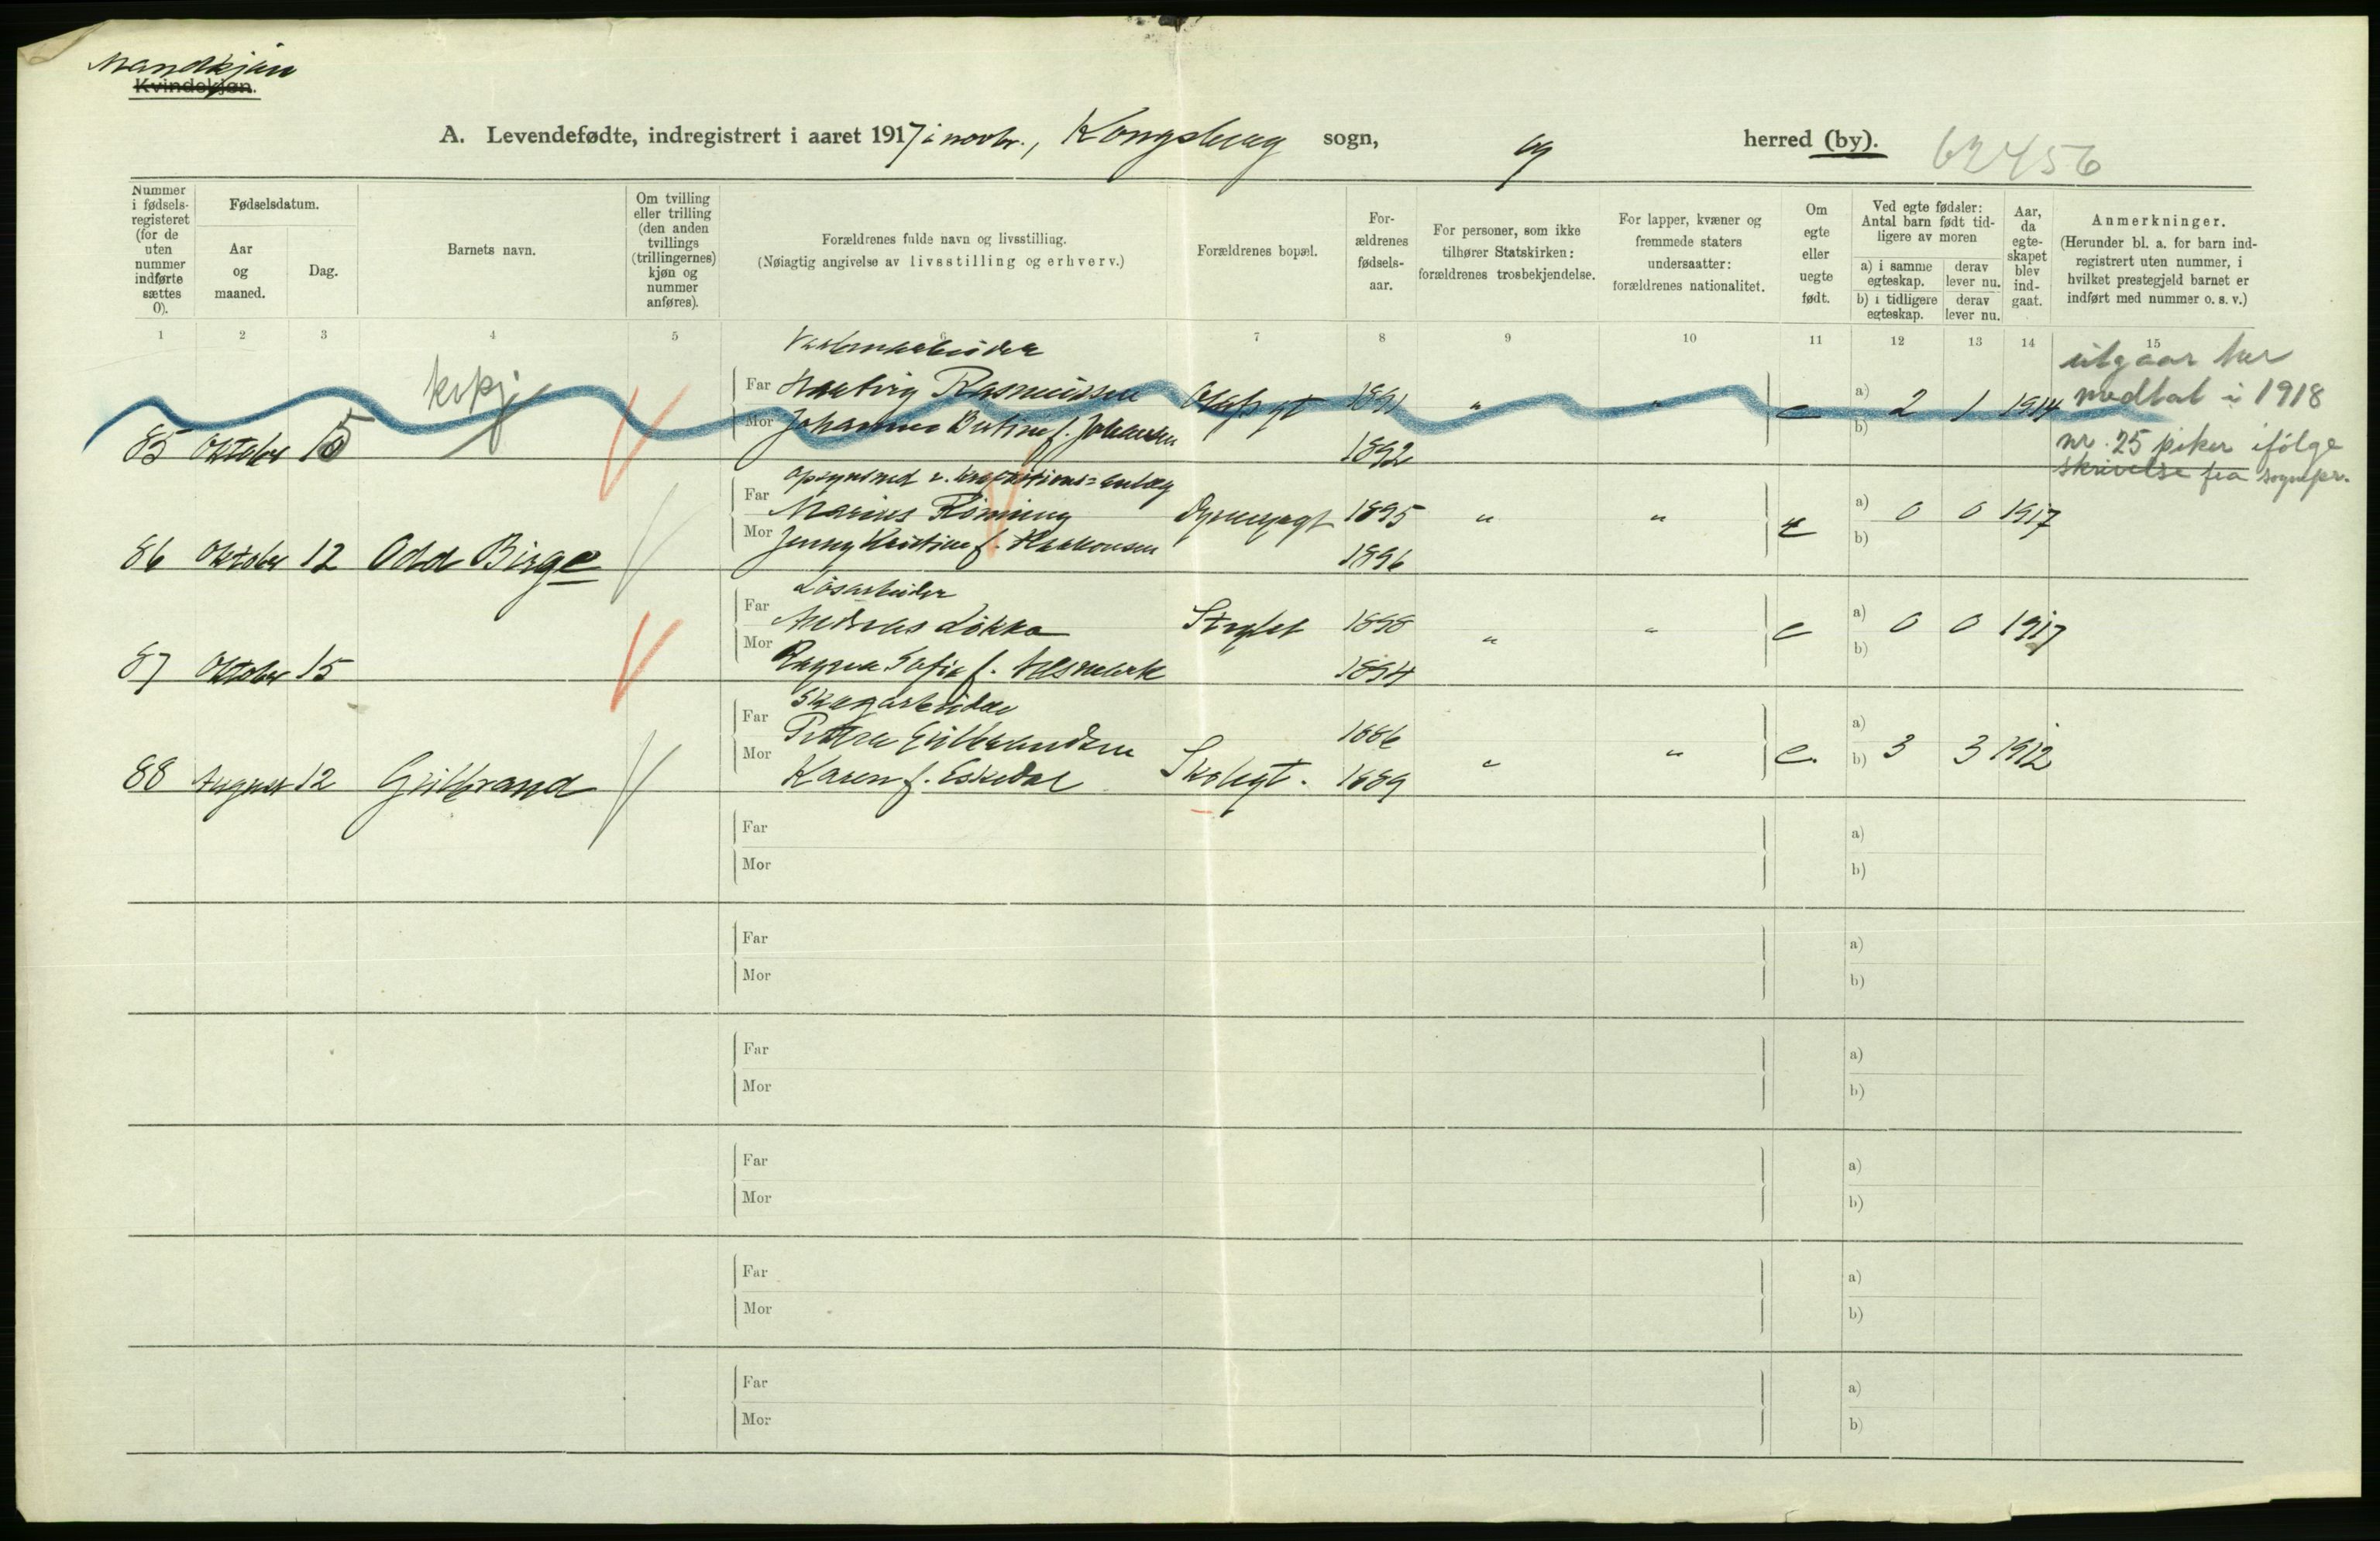 Mandkjøn
Kvindekjøn.
A. Levendefødte, indregistrert i aaret 1917 i novbr., Kongsberg sogn, by herred (by). 62456
Nummer i fødsels-registeret (for de uten nummer indførte sættes 0).
Fødselsdatum.
Aar og maaned.
Dag.
Barnets navn.
Om tvilling eller trilling (den anden tvillings (trillingernes) kjøn og nummer anføres).
Forældrenes fulde navn og livsstilling.
(Nøiagtig angivelse av livsstilling og erhverv.)
Forældrenes bopæl.
For-ældrenes fødsels-aar.
For personer, som ikke tilhører Statskirken: forældrenes trosbekjendelse.
For lapper, kvæner og fremmede staters undersaatter: forældrenes nationalitet.
Om egte eller uegte født.
Ved egte fødsler: Antal barn født tid-ligere av moren
a) i samme egteskap.
derav lever nu.
b) i tidligere egteskap.
derav lever nu.
Aar, da egte-skapet blev ind-gaat.
Anmerkninger.
(Herunder bl. a. for barn ind-registrert uten nummer, i hvilket prestegjeld barnet er indført med nummer o. s. v.)
1 2 3 4 5 6 7 8 9 10 11 12 13 14 15
kvkj
utgaar her
Far Hartvig Rasmussen 1891 " " e a) 2 1 1914 medtat i 1918
Mor Johanne f. Johansen b)
85 Oktober 15 1892 nr. 25 piker ifølge
skrivelse fra sognepr.
Far Marius Rönning 1895 " " e a) 0 0 1917
Mor Jenny Kristine f. Haakonsen b)
86 Oktober 12 Odd Birge 1896
Løsarbeider
Far Andreas Løkka 1898 " " e a) 0 0 1917
Mor Sofie f. b)
87 Oktober 15 1894
Skogarbeider
Far Gulbrandsen 1886 " " e. a)
Mor Karen f. Eskedal Skolegt. 1889 b) 3 3 1912
88 August 12 Gulbrand
Far a)
Mor b)
Far a)
Mor b)
Far a)
Mor b)
Far a)
Mor b)
Far a)
Mor b)
Far a)
Mor b)